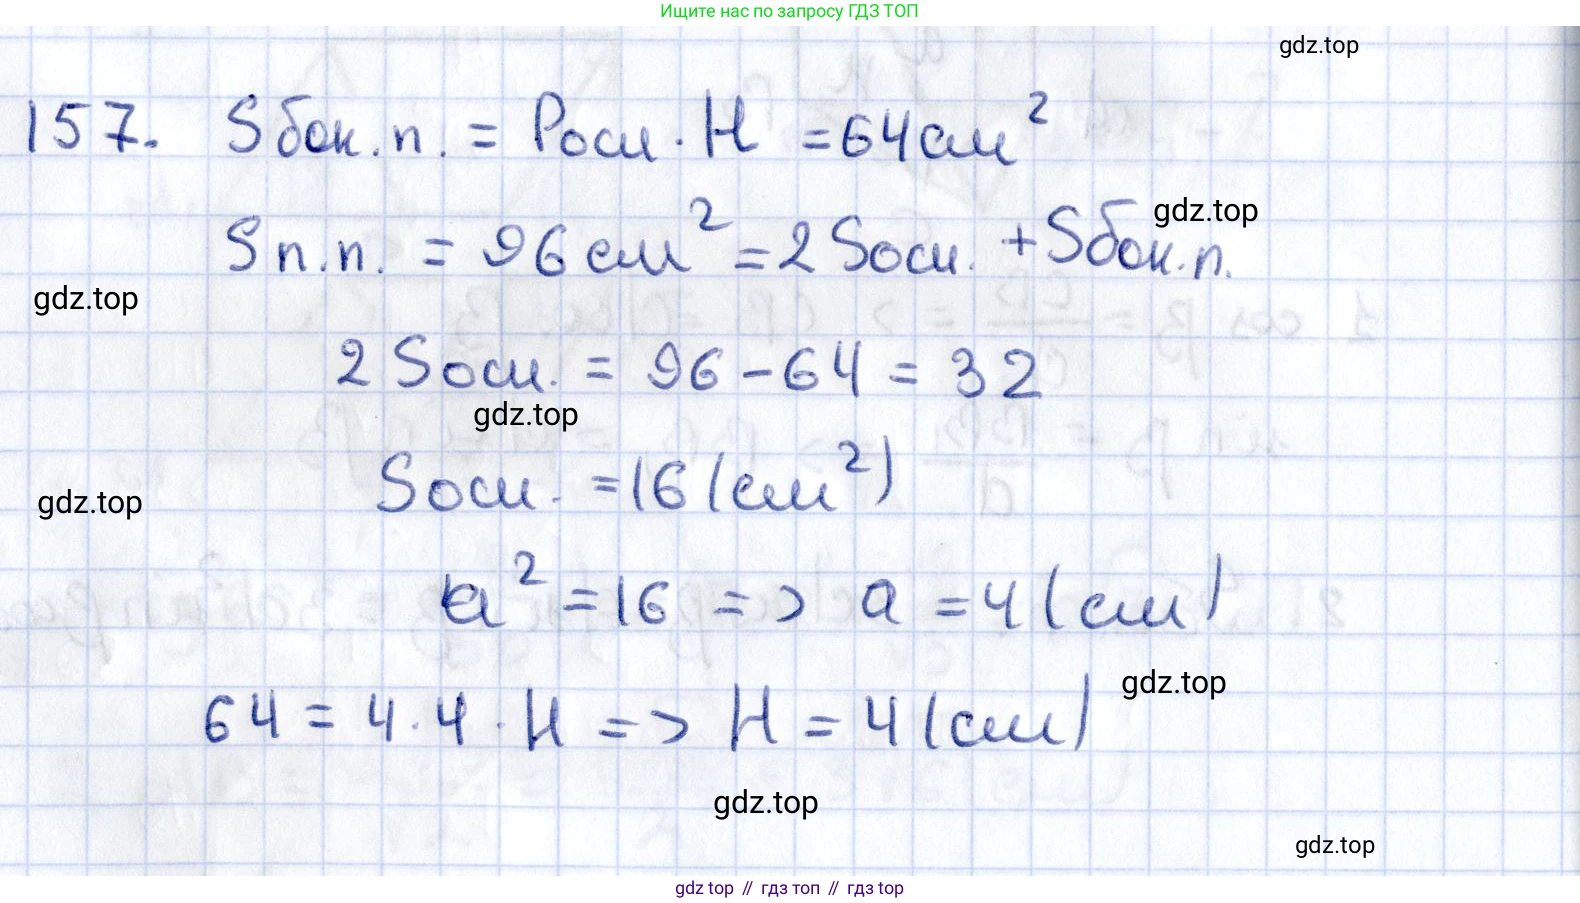 Ищите нас по запросу ГДЗ ТОП
gdz.top
157. Sбок.п. = Pосн · H = 64 см²
gdz.top
Sп.п. = 96 см² = 2 Sосн. + Sбок.п.
gdz.top
2 Sосн. = 96 - 64 = 32
gdz.top
Sосн. = 16 (см²)
gdz.top
a² = 16 => a = 4 (см)
gdz.top
64 = 4 · 4 · H => H = 4 (см)
gdz.top
gdz.top
gdz top // гдз топ // гдз top